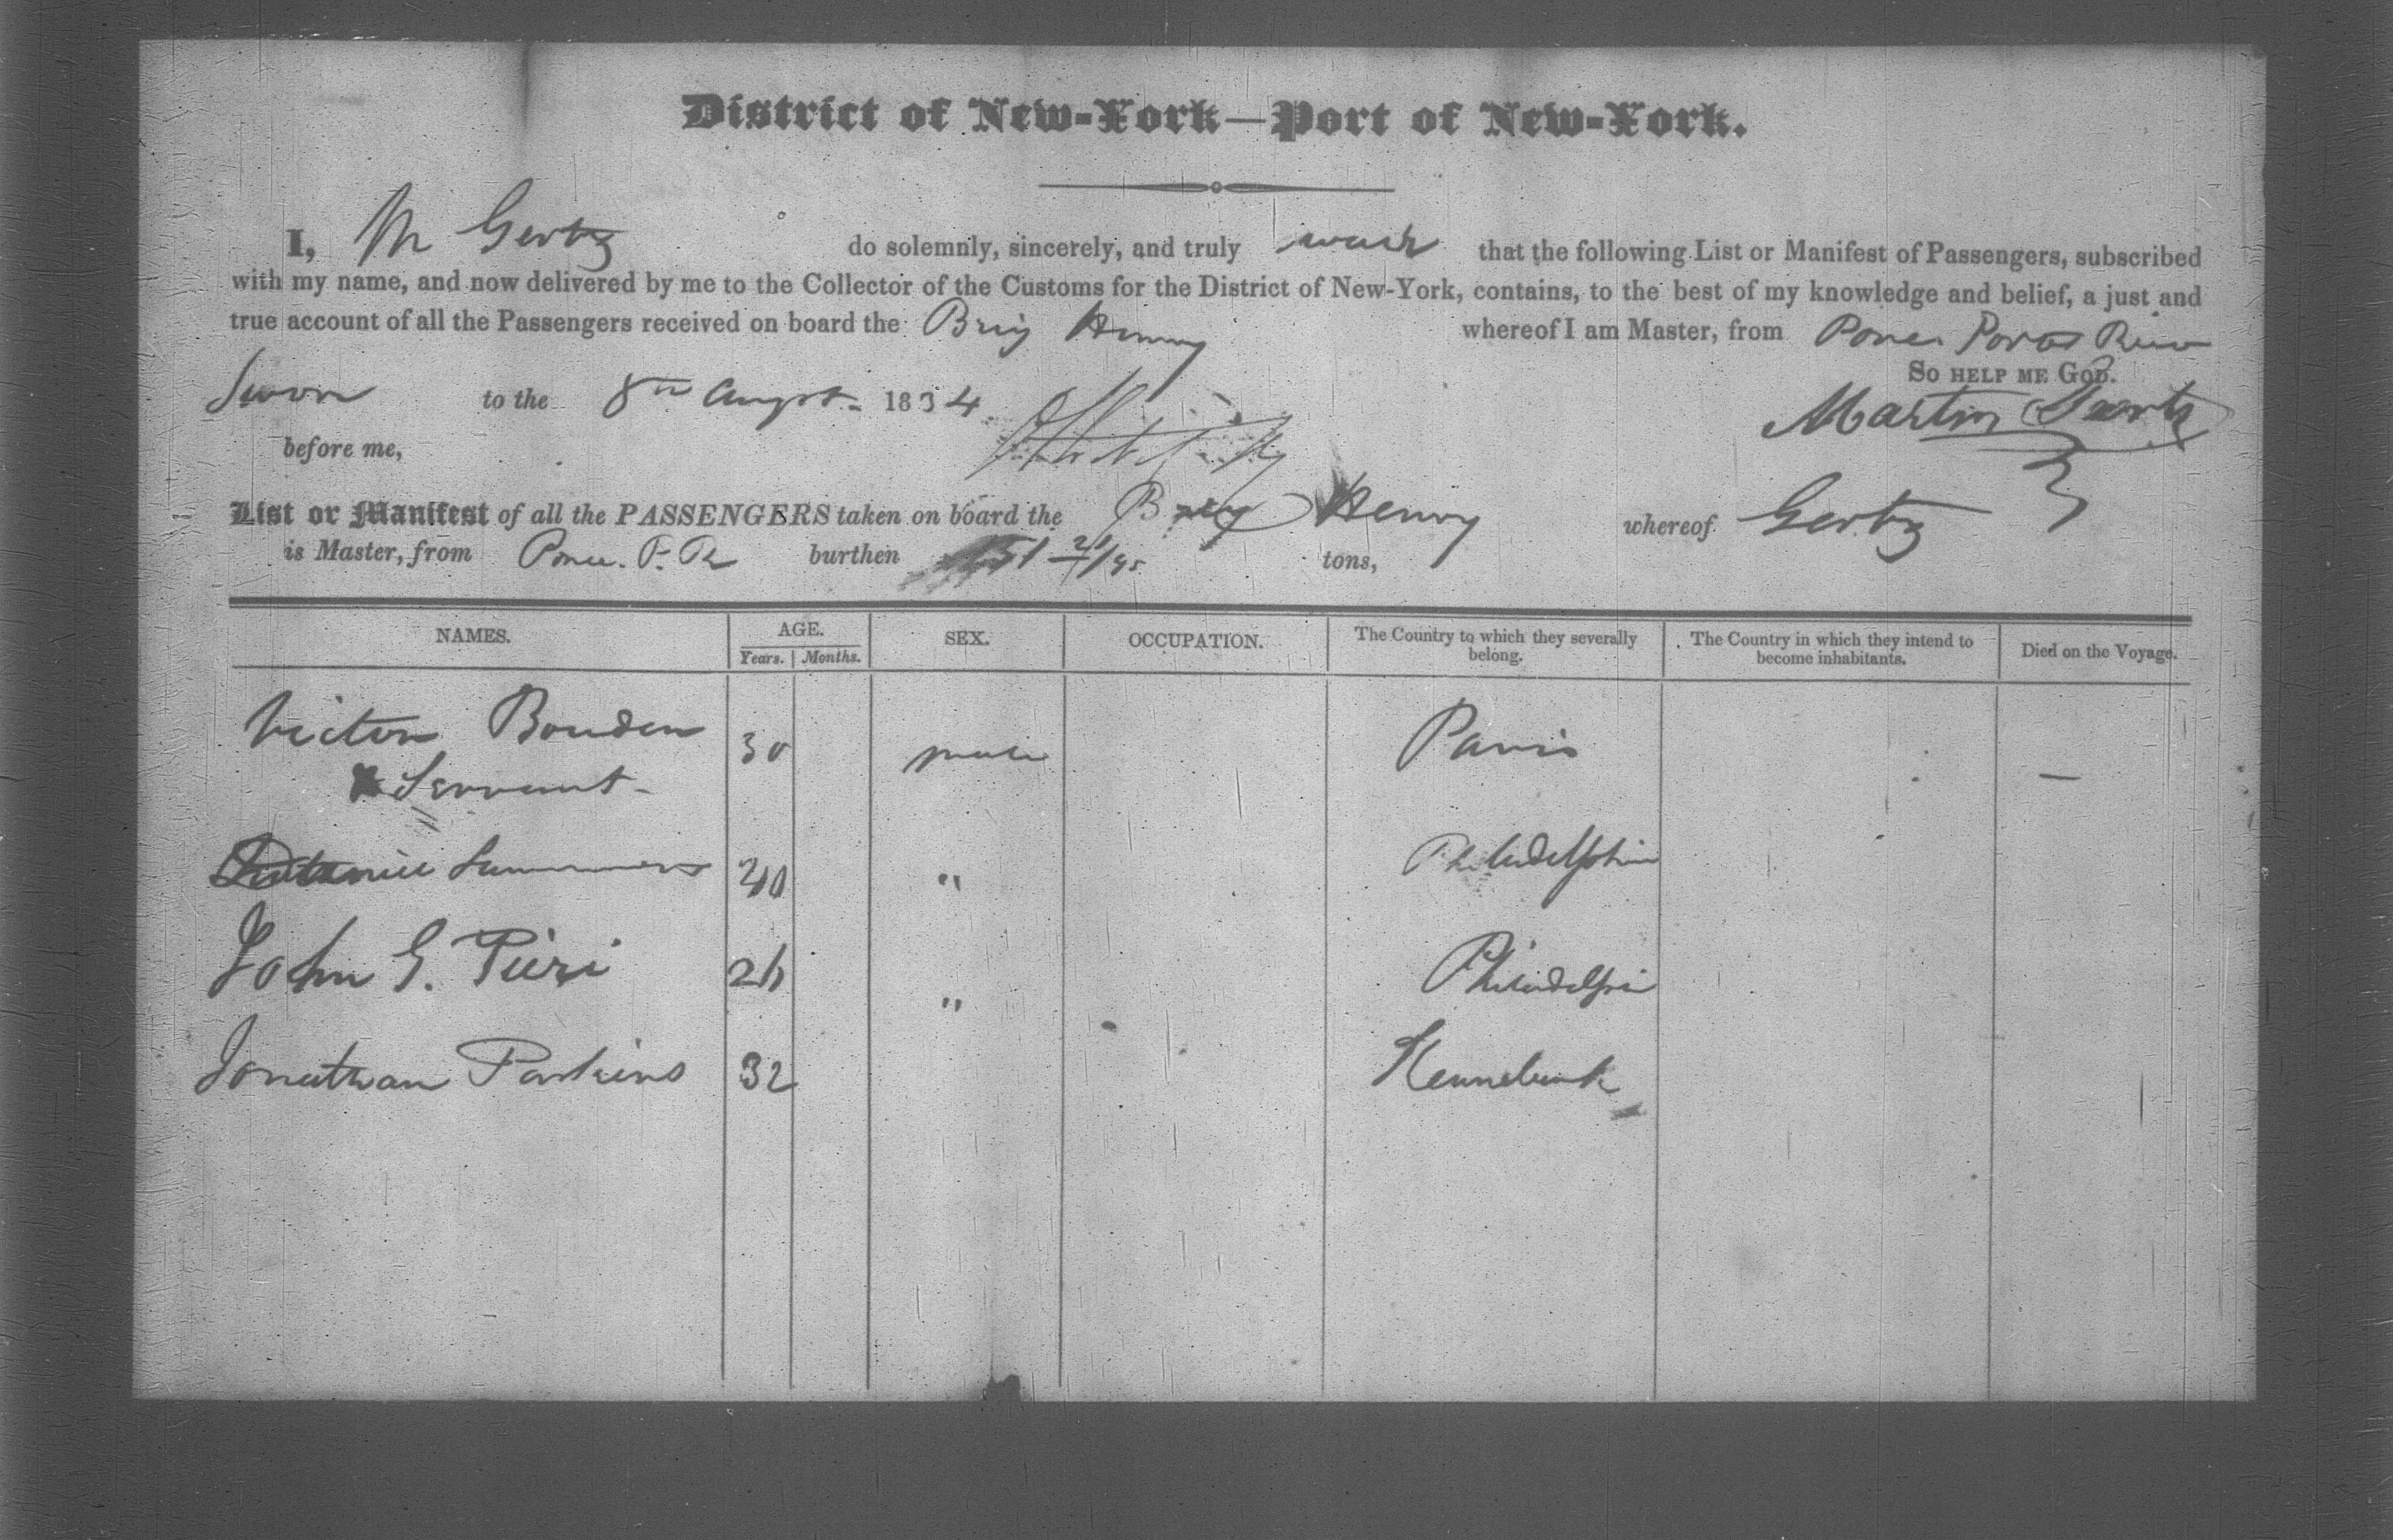 District of New-York—Port of New-York.
I, M Gertz do solemnly, sincerely, and truly swear that the following List or Manifest of Passengers, subscribed
with my name, and now delivered by me to the Collector of the Customs for the District of New-York, contains, to the best of my knowledge and belief, a just and
true account of all the Passengers received on board the Brig Henry whereof I am Master, from Ponce Porto Rico
So HELP ME GOD.
Sworn to the 8th August 1834
Martin Gertz
before me,
List or Manifest of all the PASSENGERS taken on board the Brig Henry whereof Gertz
is Master, from Ponce. P. R burthen 151 21/95 tons,
NAMES. AGE. SEX. OCCUPATION. The Country to which they severally belong. The Country in which they intend to become inhabitants. Died on the Voyage.
Years. Months.
Victor Bouden 30 male Paris —
& Servant
Summers " Philadelphia
John G. Pieri 26 " Philadelphi
Jonathan Perkins 32 Kennebunk